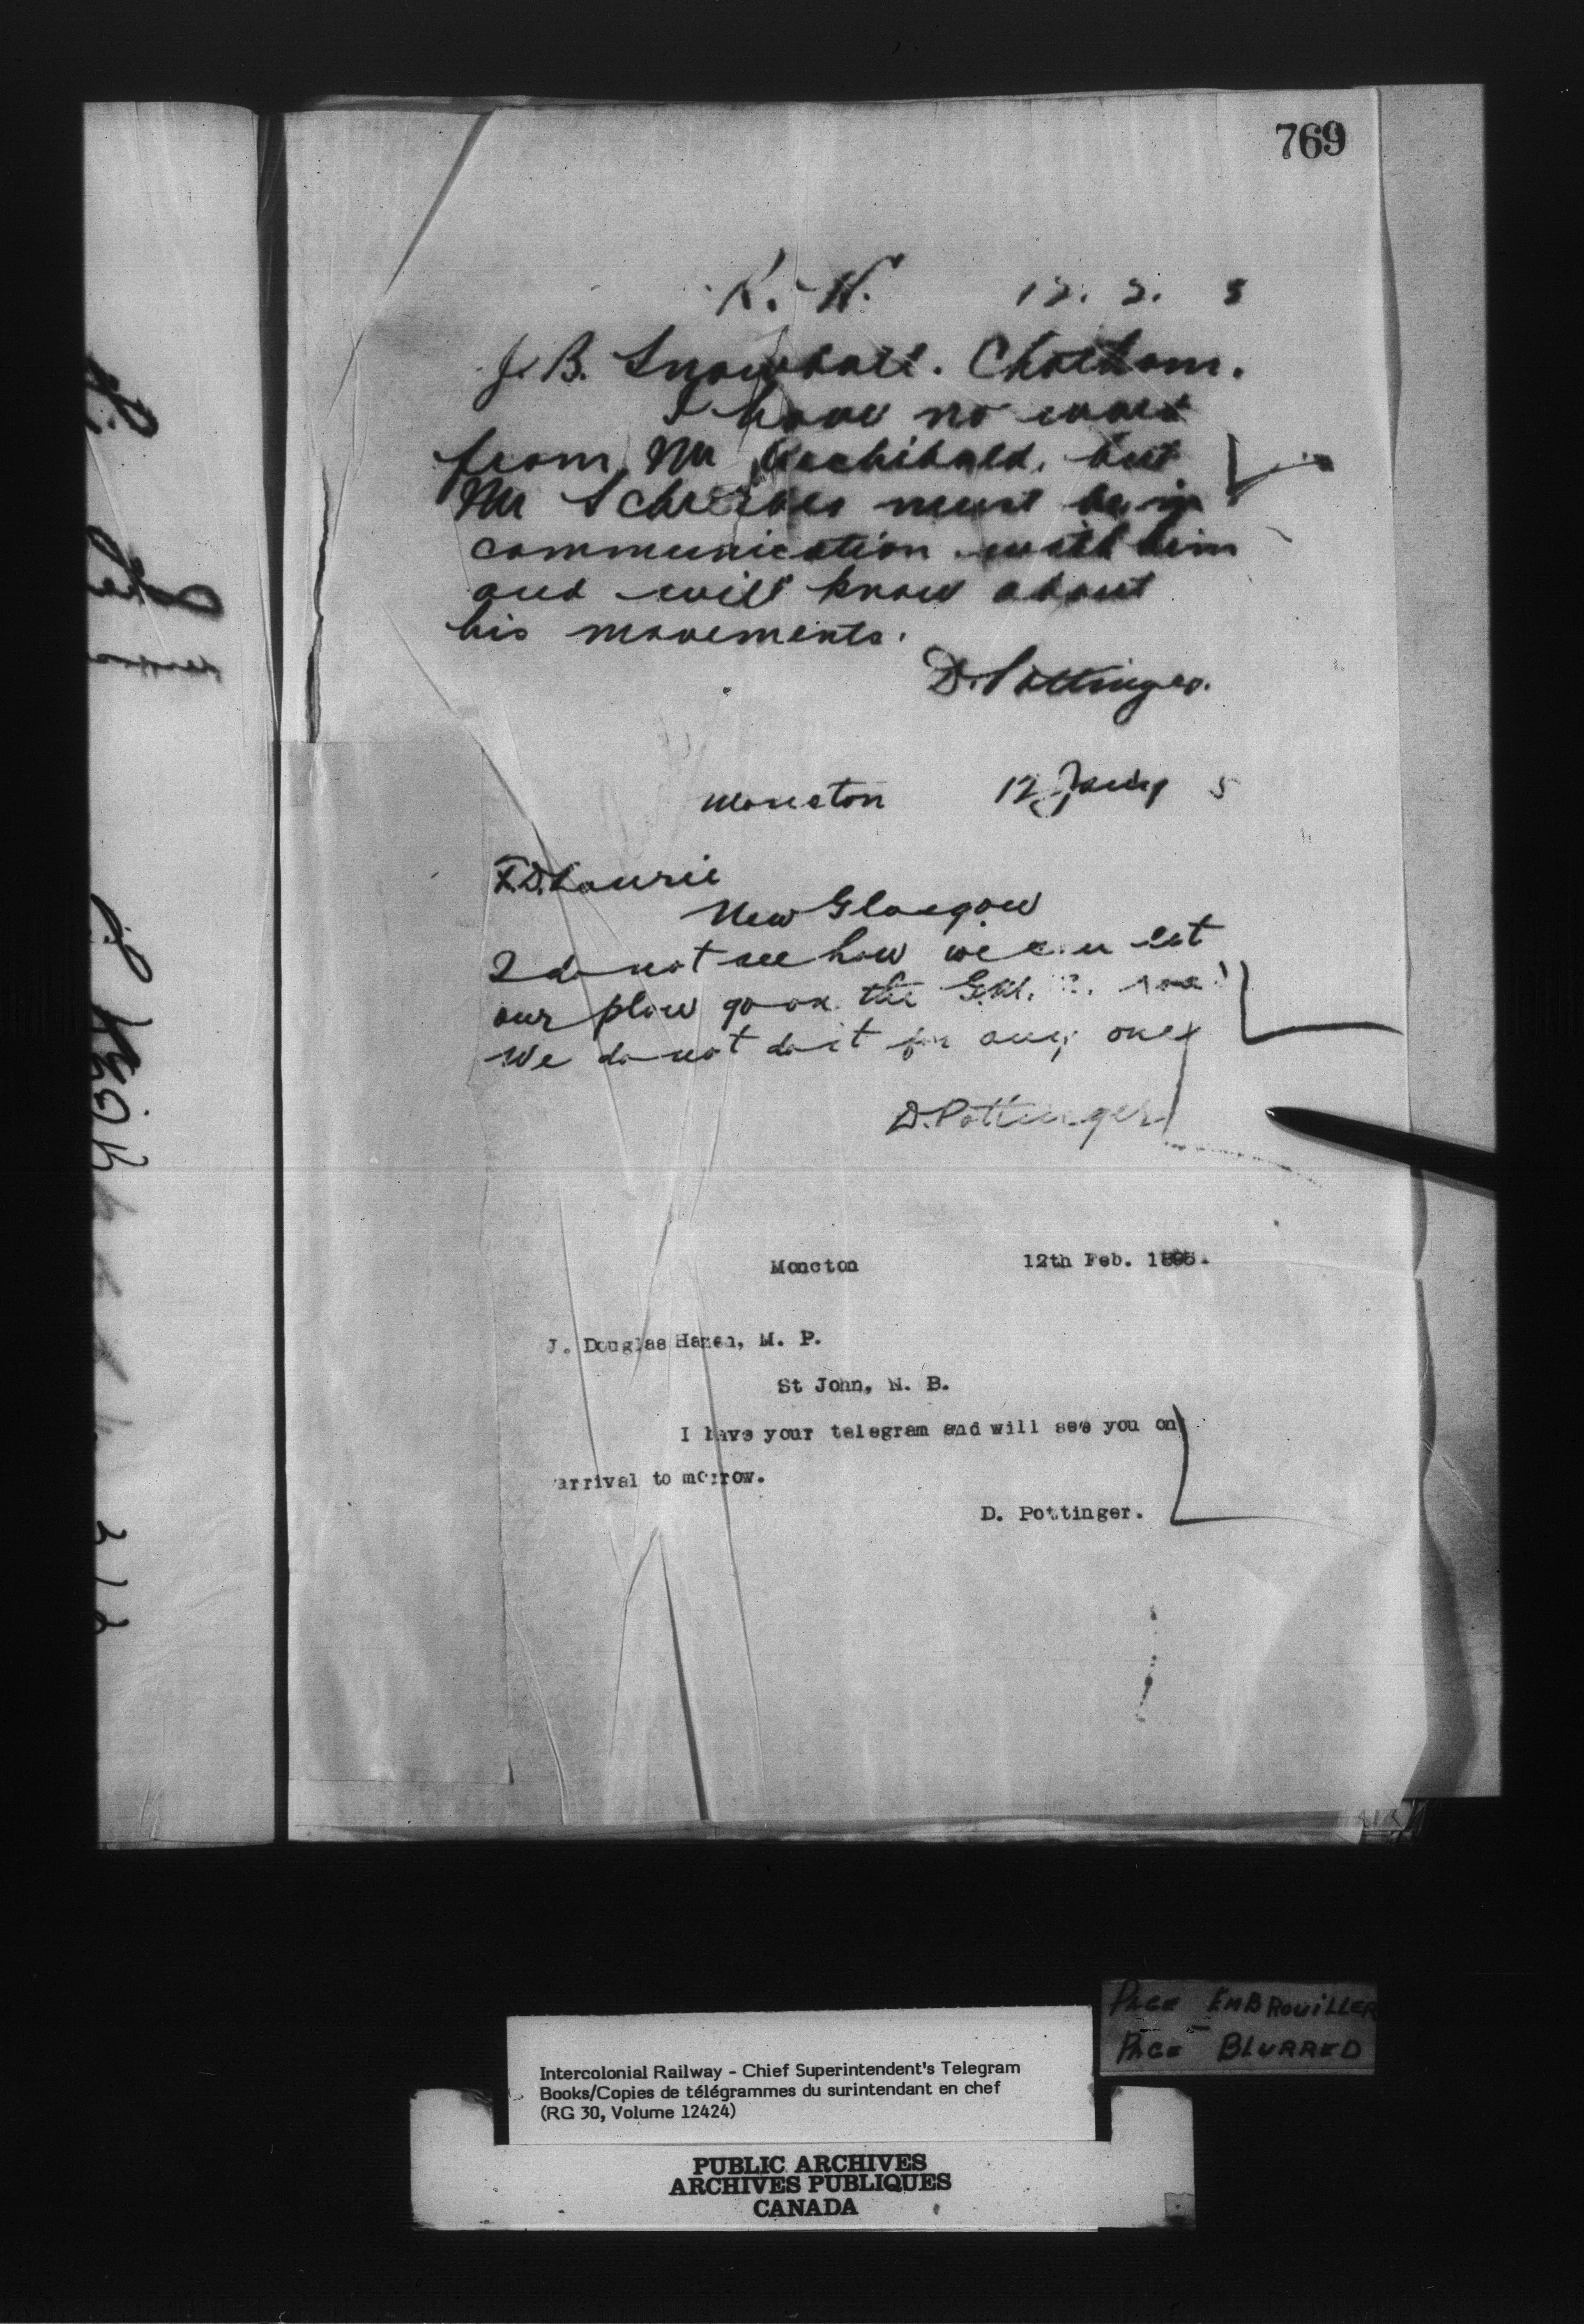 769
K. H. 12. 2. 5
J. B. Snowball. Chatham.
I have no word
from Mr Archibald, but
Mr Schreiber must be in
communication with him
and will know about
his movements.
D. Pottinger.
Moncton 12 5
F.D. Laurie
New Glasgow
I do not see how we can let
our plow go on the
We do not do it for any one
D. Pottinger
Moncton 12th Feb. 1895.
J. Douglas Hazen, M. P.
St John, N. B.
I have your telegram and will see you on
arrival to morrow.
D. Pottinger.
PAGE EMBROUILLER
PAGE BLURRED
Intercolonial Railway - Chief Superintendent's Telegram
Books/Copies de télégrammes du surintendant en chef
(RG 30, Volume 12424)
PUBLIC ARCHIVES
ARCHIVES PUBLIQUES
CANADA